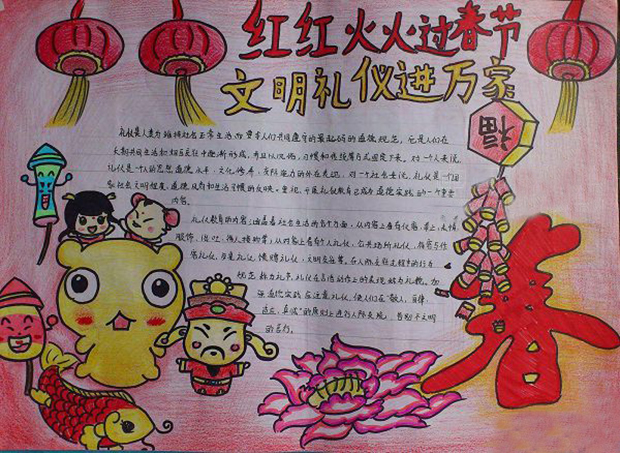 红红火火过春节
文明礼仪进万家
福
春
礼仪是人类为维持社会正常生活而要求人们共同遵守的最起码的道德规范，它是人们在
长期共同生活和相互交往中逐渐形成，并且以风俗、习惯和传统等方式固定下来。对一个人来说，
礼仪是一个人的思想道德水平、文化修养、交际能力的外在表现，对一个社会来说，礼仪是一个国
家社会文明程度、道德风尚和生活习惯的反映。重视、开展礼仪教育已成为道德实践的一个重要
内容。
礼仪教育的内容涵盖着社会生活的各个方面。从内容上看有仪容、举止、表情、
服饰、谈吐、待人接物等；从对象上看有个人礼仪、公共场所礼仪、待客与作
客礼仪、餐桌礼仪、馈赠礼仪、文明交往等。在人际交往过程中的行为
规范称为礼节，礼仪在言语动作上的表现称为礼貌。加
强道德实践应注意礼仪，使人们在"敬人、自律、
适度、真诚"的原则上进行人际交往，告别不文明
的言行。